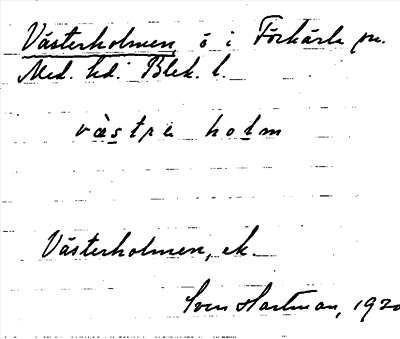 Västerholmen ö i Förkärla sn.
Med. hd. Blek. l.
västre holm
Västerholmen, ek.
Sven Hartman, 192